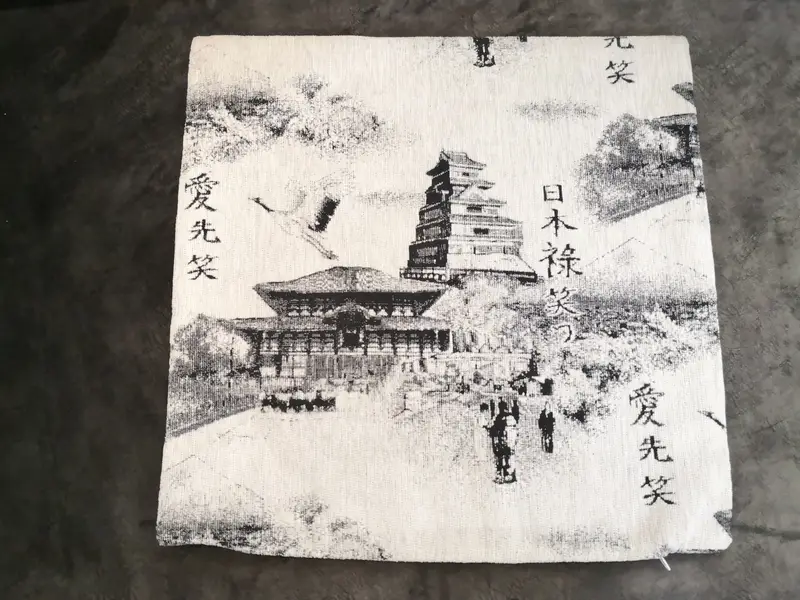 先笑
愛先笑
日本祿笑
愛先笑